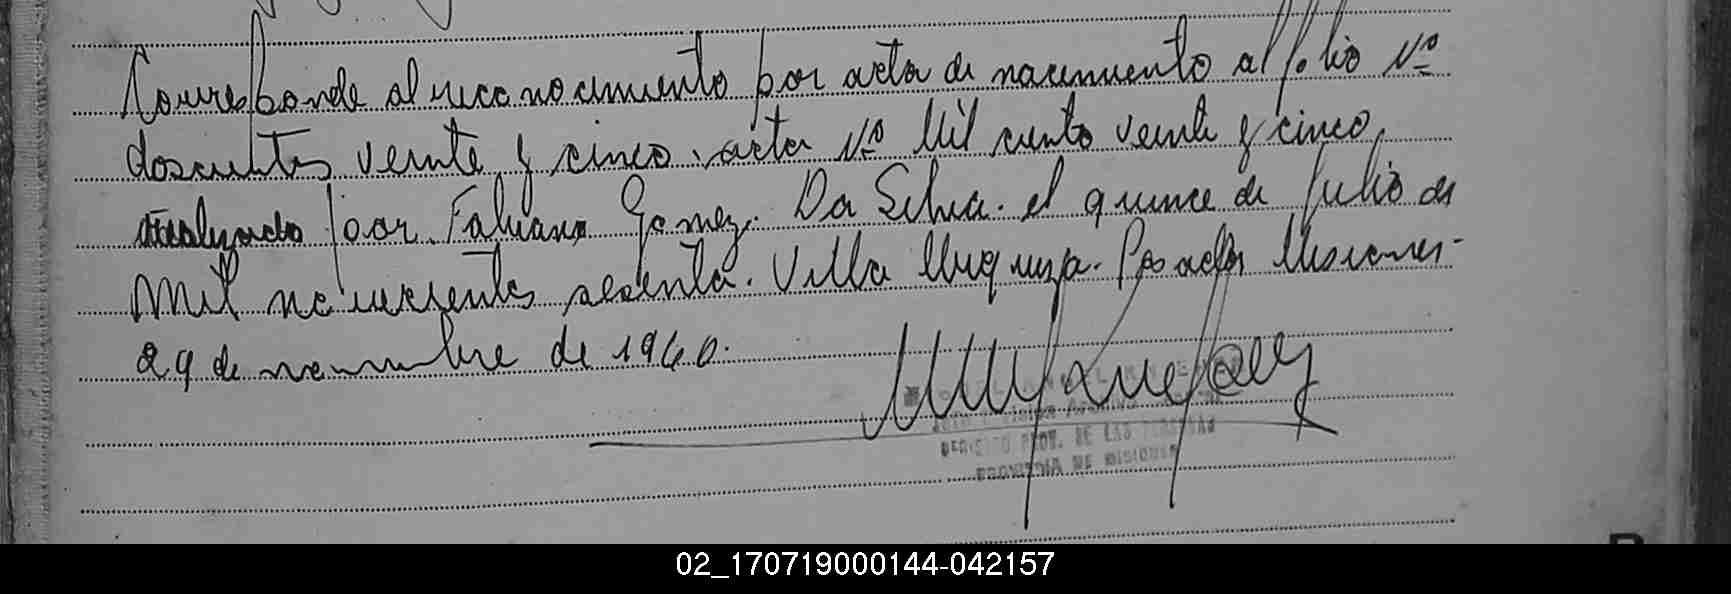 Corresponde al reconocimiento por acta de nacimiento al folio Nº
doscientos veinte y cinco. acta Nº Mil ciento veinte y cinco,
realizado por Fabiana Gomez. Da Silva. el quince de Julio de
mil novecientos sesenta. Villa Urquiza. Posadas Misiones-
29 de noviembre de 1960.
PROV. DE LAS PERSONAS
PROVINCIA DE MISIONES
02_170719000144-042157